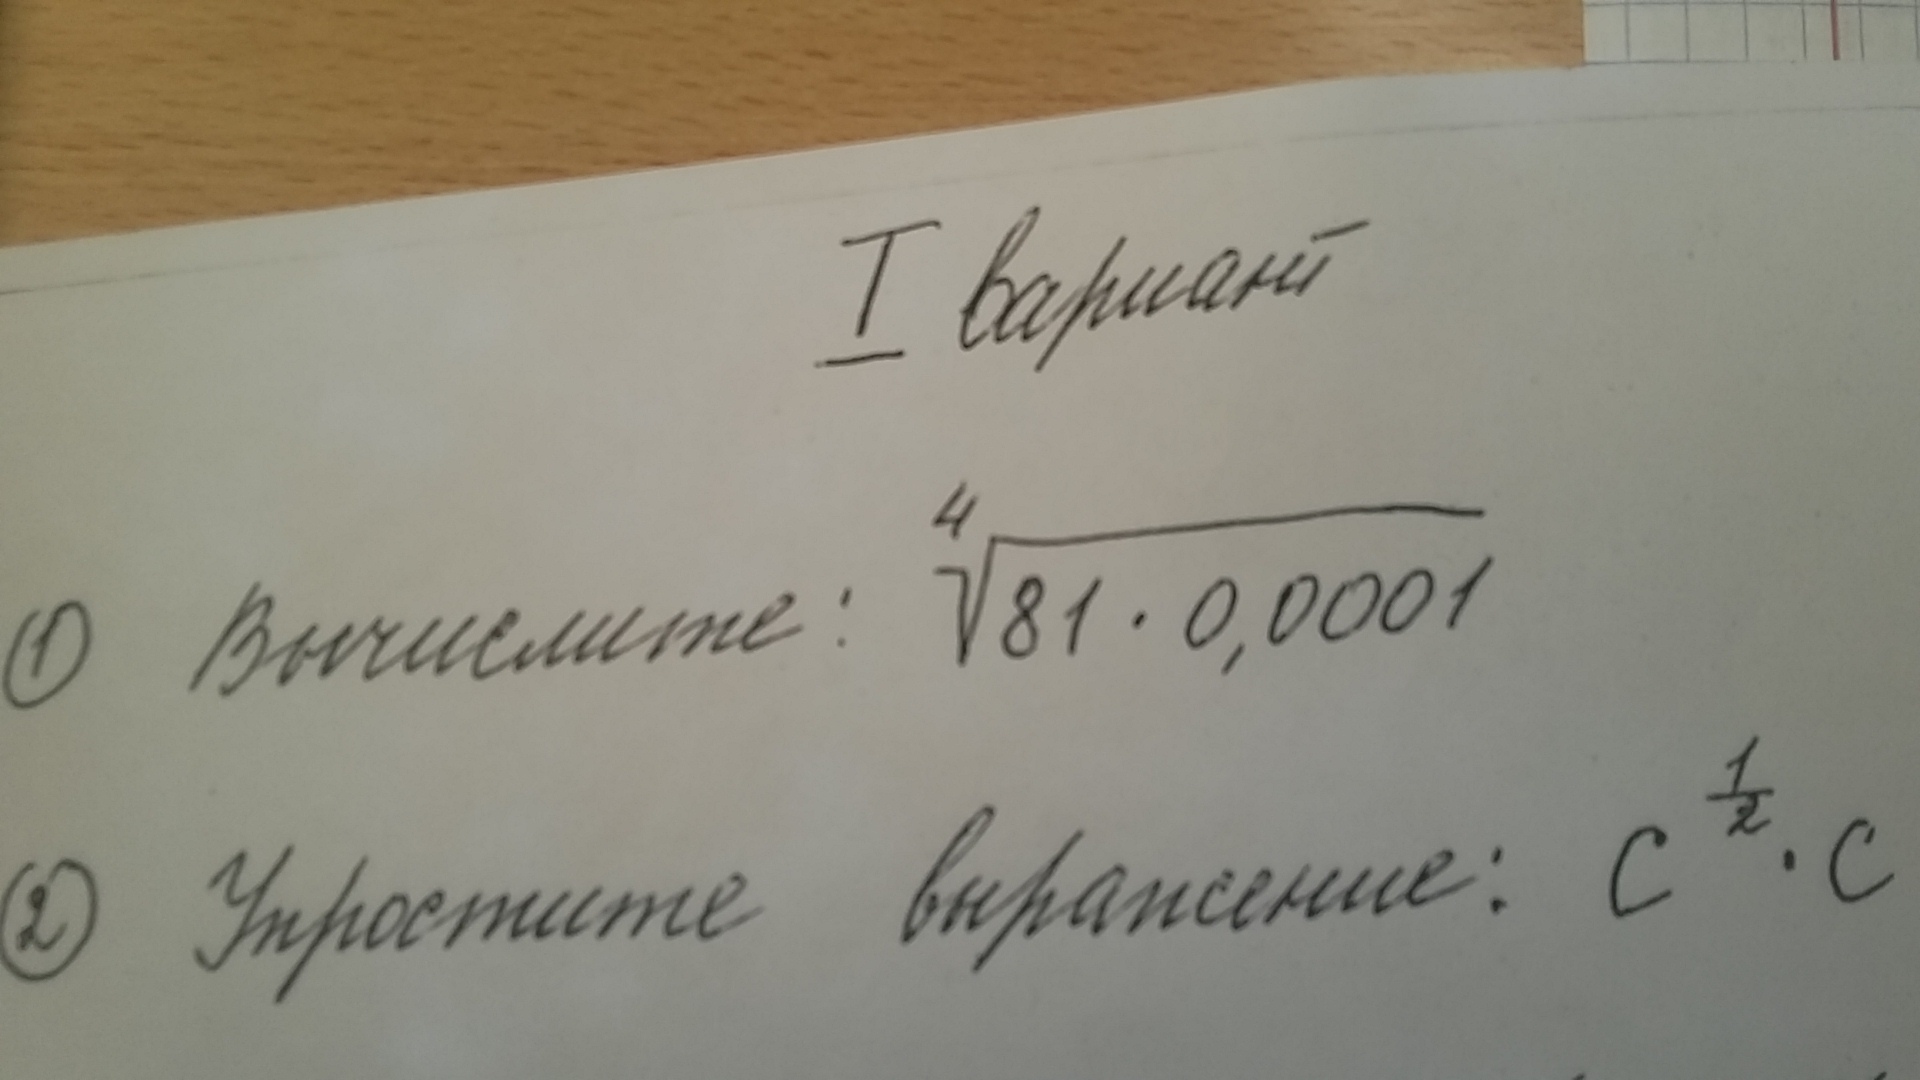 I вариант
① Вычислите: ⁴√81 · 0,0001
② Упростите выражение: c^(1/2) · c